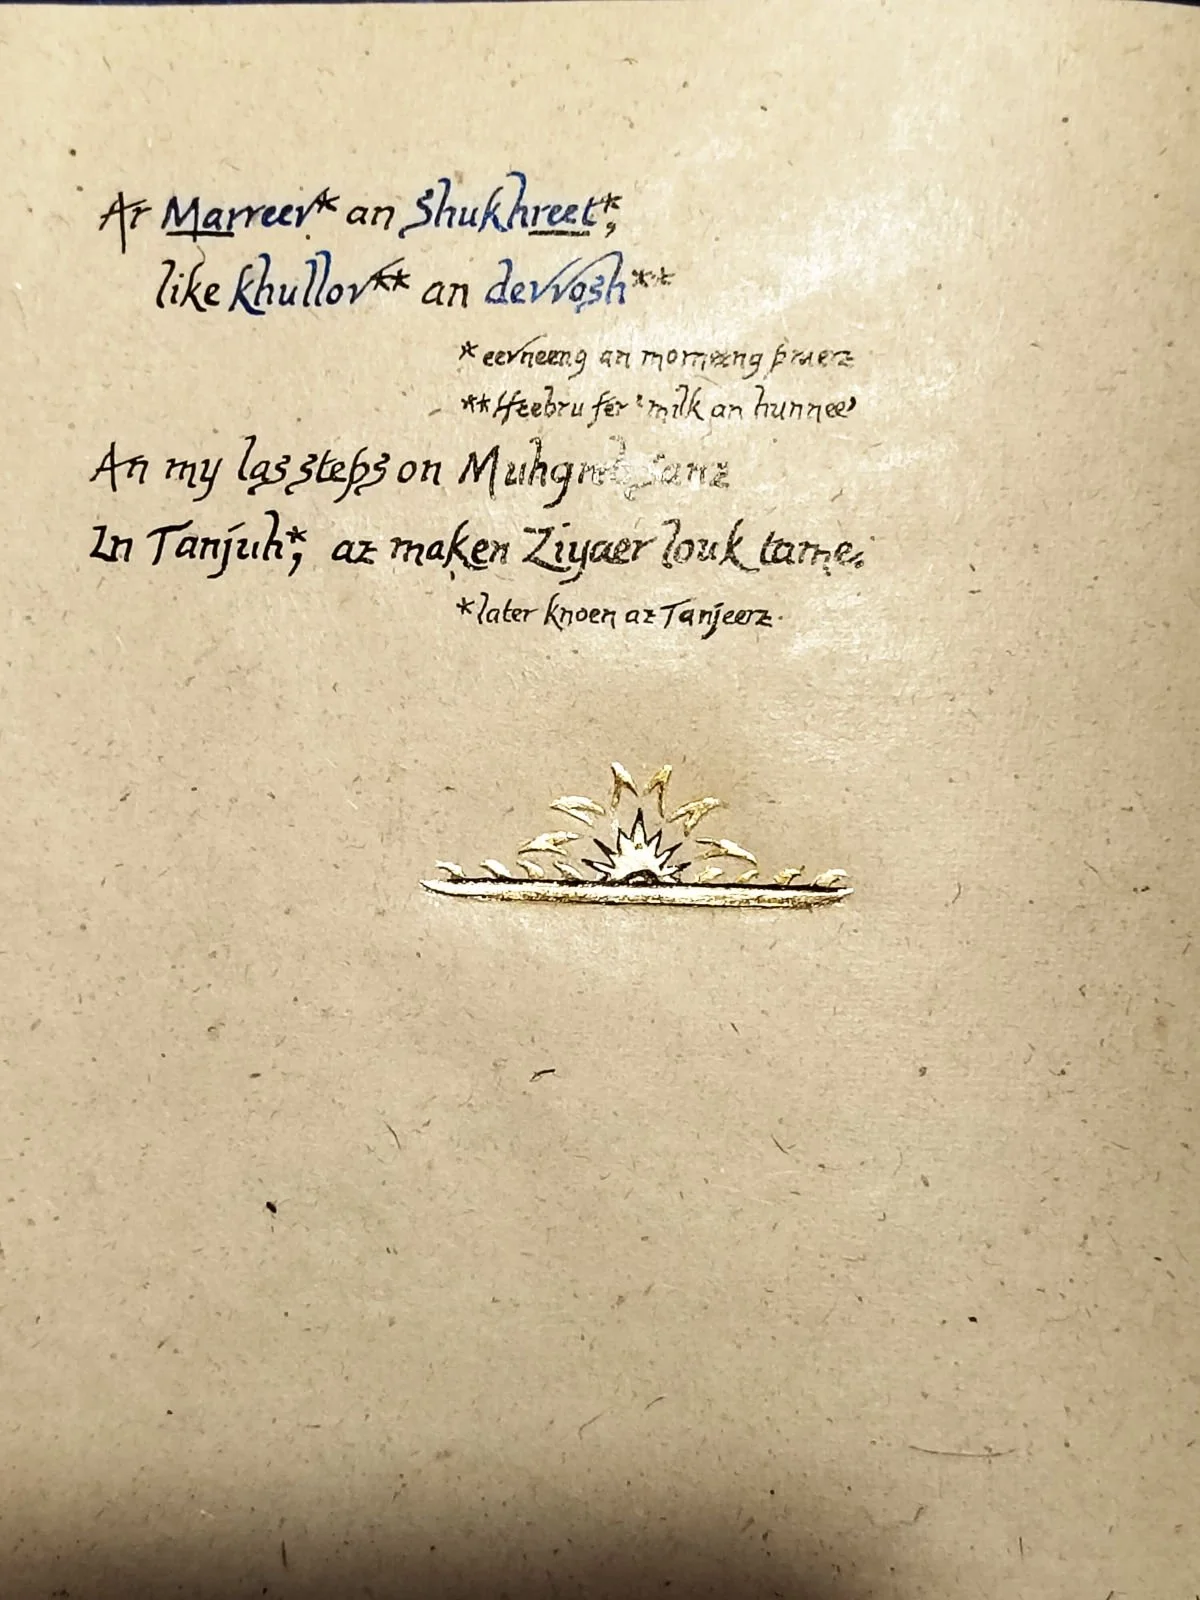 Ar Marreev* an Shukhreet*,
like khullov** an devvosh**
*eevneeng an morneeng praerz
**Heebru fer 'milk an hunnee'
An my las steps on Muhgreb sanz
In Tanjuh*, az maken Ziyaer louk tame.
*later knoen az Tanjeerz.